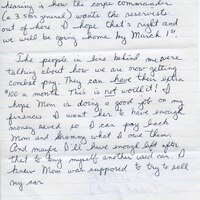 hearing is how the corps commander
(a 3 star general) wants the reservists
out of here. I hope that's right and
we will be going home by March 1st.
The people in line behind me were
talking about how we are now getting
combat pay. They can have their extra
$100 a month. This is not worth it! I
hope Mom is doing a good job on my
finances. I want her to have enough
money saved so I can pay back
Mom and Grammy what I owe them.
And maybe I'll have enough left after
that to buy myself another used car. I
knew Mom was supposed to try to sell
my car